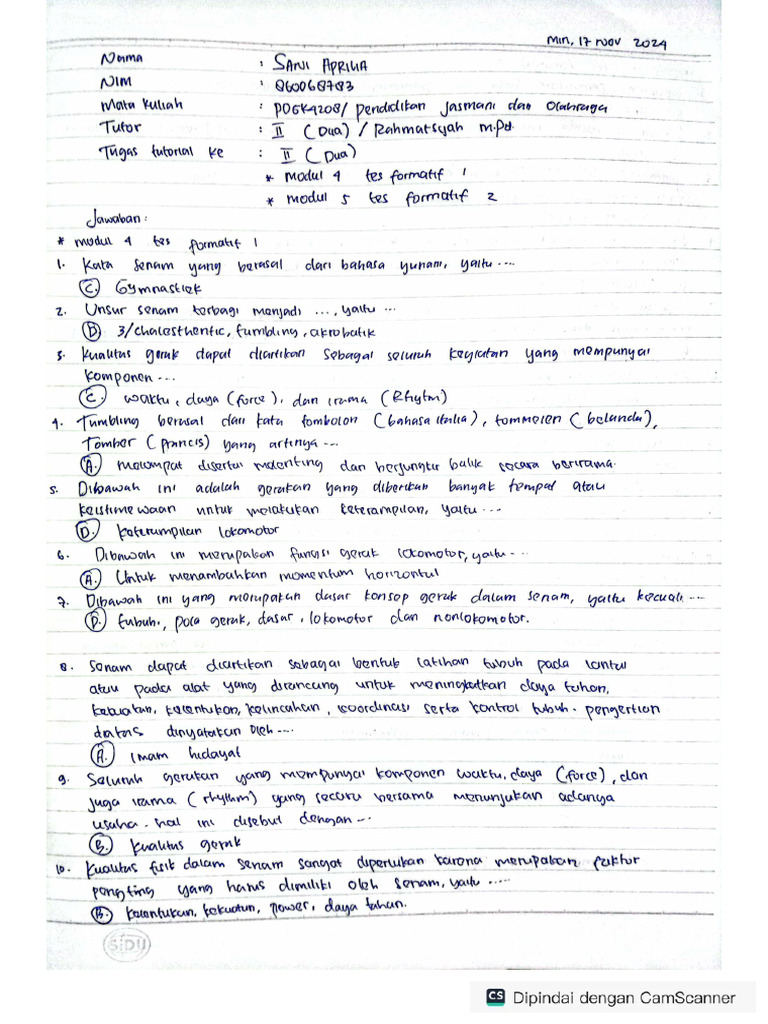 Min, 17 Nov 2024
Nama : SANI APRILIA
NIM : 860068783
Mata Kuliah : PDGK4208/ Pendidikan Jasmani dan Olahraga
Tutor : II (Dua) / Rahmatsyah M.Pd.
Tugas tutorial ke : II (Dua)
* modul 4 tes formatif 1
* modul 5 tes formatif 2
Jawaban :
* modul 4 tes formatif 1
1. Kata senam yang berasal dari bahasa yunani, yaitu ....
C. Gymnastiek
2. Unsur senam terbagi menjadi ..., yaitu ...
B 3/chalesthentic, tumbling, akrobatik
3. Kualitas gerak dapat diartikan sebagai seluruh kegiatan yang mempunyai
komponen ...
C. waktu, daya (force), dan irama (Rhytm)
4. Tumbling berasal dari kata tombolon (bahasa itali), tommelen (belanda),
Tomber (prancis) yang artinya ...
A. melompat disertai melenting dan berjungkir balik secara berirama.
5. Dibawah ini adalah gerakan yang diberikan banyak tempat atau
keistimewaan untuk melakukan keterampilan, yaitu ...
D. keterampilan lokomotor
6. Dibawah ini merupakan fungsi gerak lokomotor, yaitu ...
A. Untuk menambahkan momentum horizontal
7. Dibawah ini yang merupakan dasar konsep gerak dalam senam, yaitu kecuali ...
D. tubuh, pola gerak, dasar, lokomotor dan nonlokomotor.
8. Senam dapat diartikan sebagai bentuk latihan tubuh pada lantai
atau pada alat yang dirancang untuk meningkatkan daya tahan,
kekuatan, kelentukan, kelincahan, koordinasi serta kontrol tubuh. pengertian
diatas dinyatakan oleh ...
A. imam hidayat
9. Seluruh gerakan yang mempunyai komponen waktu, daya (force), dan
juga irama (rhythm) yang secara bersama menunjukan adanya
usaha. hal ini disebut dengan ...
B. Kualitas gerak
10. Kualitas fisik dalam senam sangat diperlukan karena merupakan faktor
pengting yang harus dimiliki oleh senam, yaitu .....
B. kelentukan, kekuatan, power, daya tahan.
SIDU
CS Dipindai dengan CamScanner